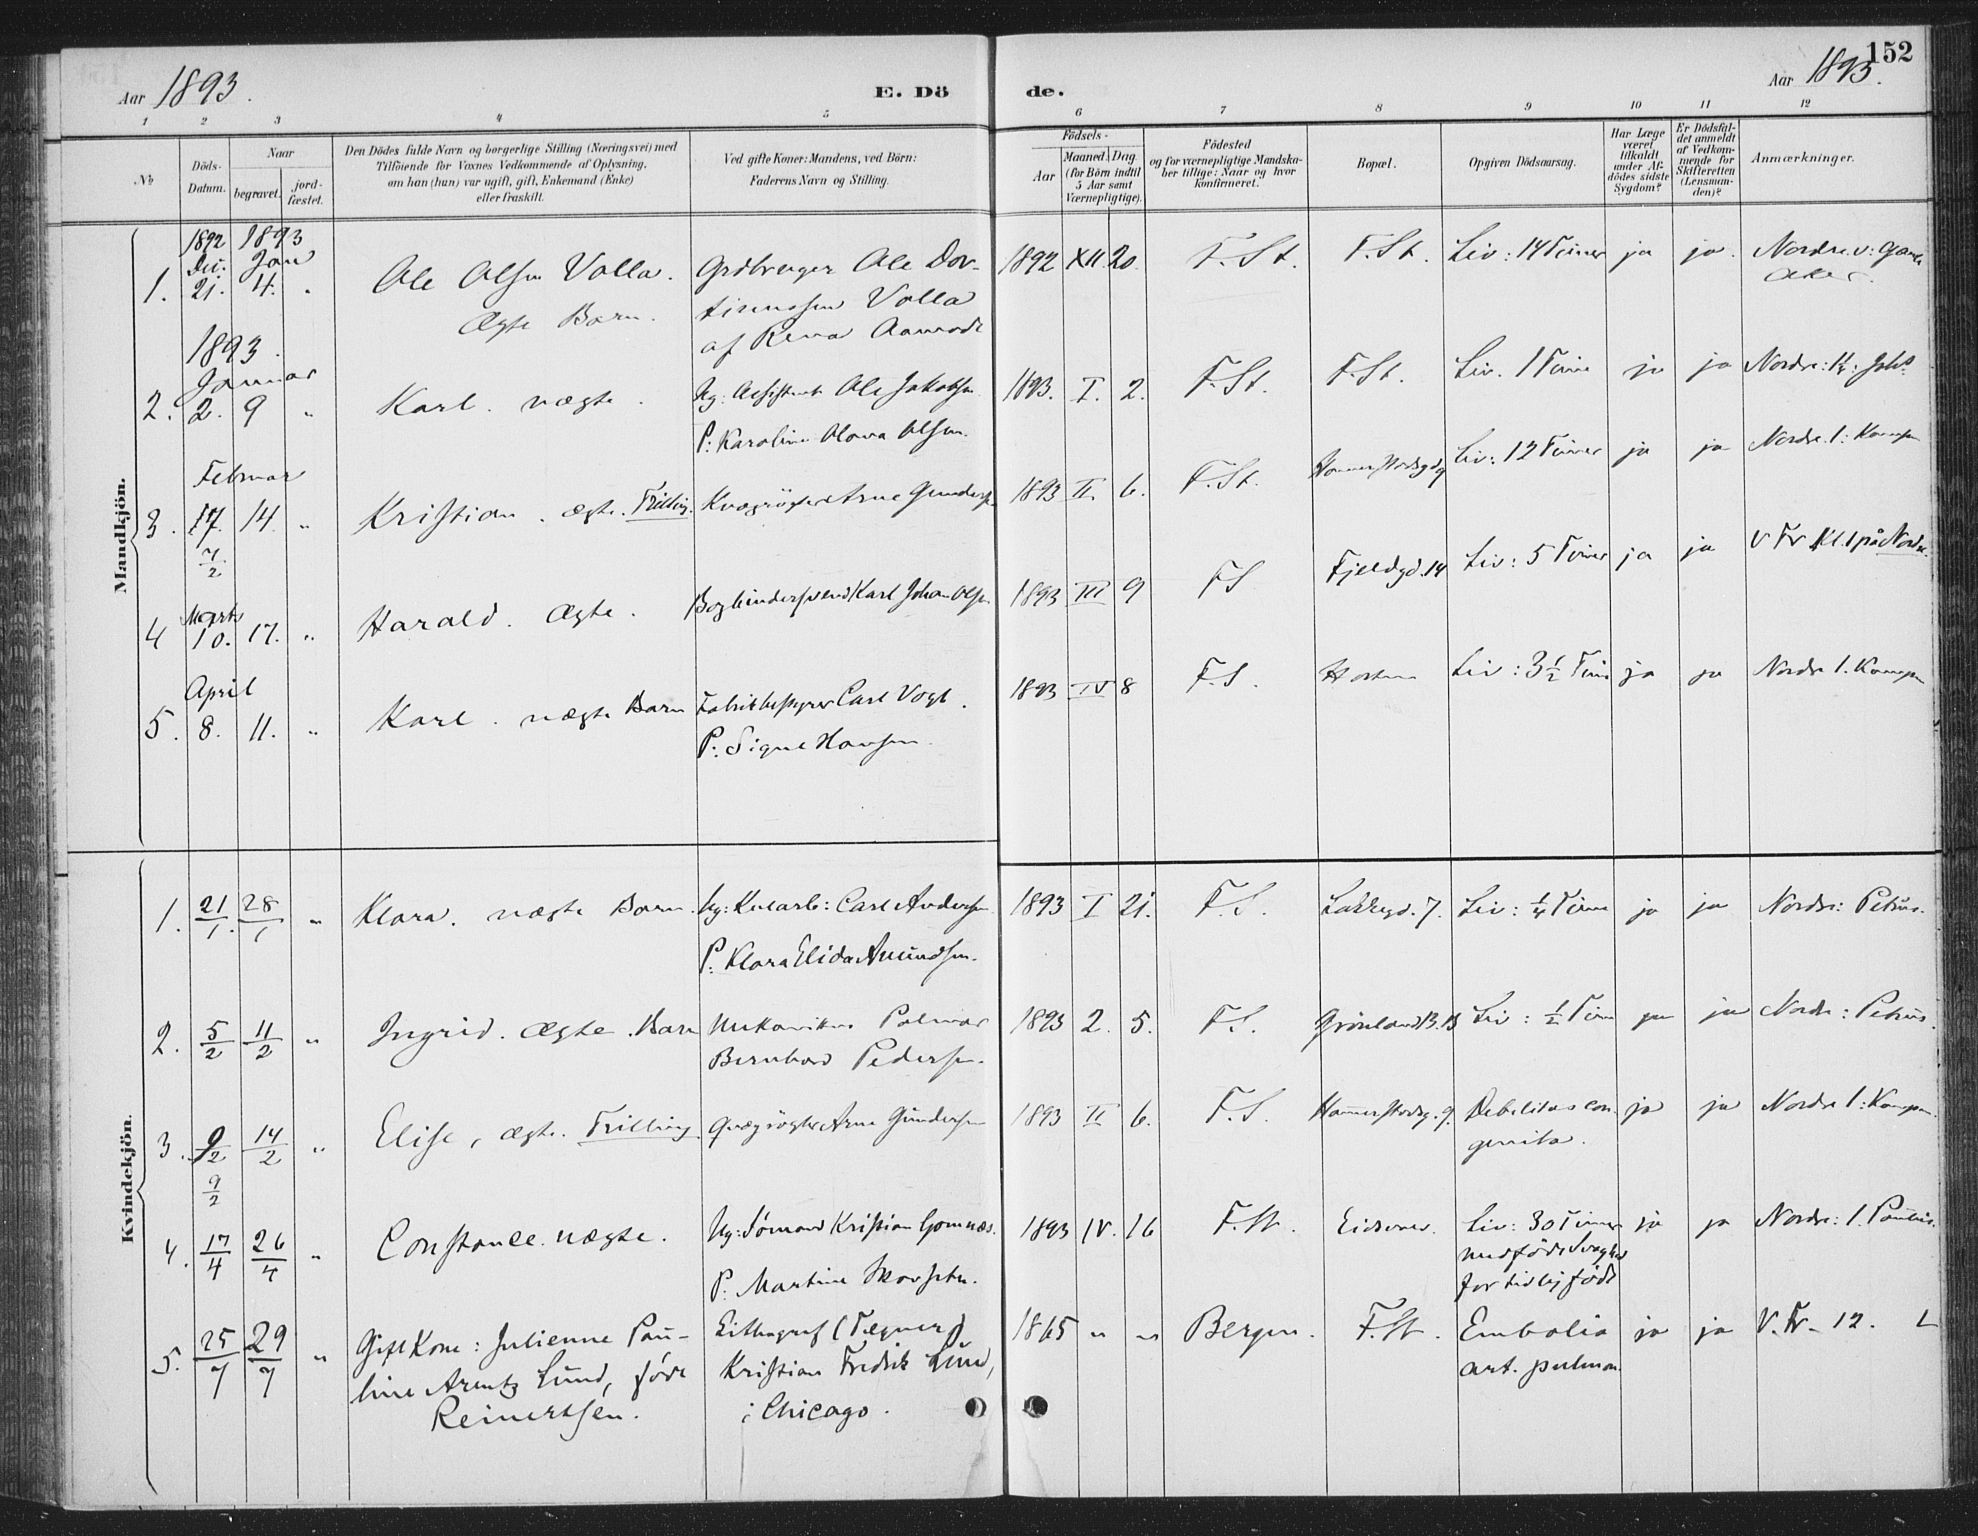 152
Aar 1893.
E. Dö
de.
Aar 1893.
1 2 3 4 5 6 7 8 9 10 11 12
No
Döds-
Datum.
Naar
begravet.
jord-
fæstet.
Den Dödes fulde Navn og borgerlige Stilling (Næringsvei) med
Tilföiende for Voxnes Vedkommende af Oplysning,
om han (hun) var ugift, gift, Enkemand (Enke)
eller fraskilt.
Ved gifte Koner: Mandens, ved Börn:
Faderens Navn og Stilling.
Födsels-
Aar
Maaned.
Dag
(for Börn indtil
5 Aar samt
Værnepligtige).
Födested
og for værnepligtige Mandska-
ber tillige: Naar og hvor
konfirmeret.
Bopæl.
Opgiven Dödsaarsag.
Har Læge
været
tilkaldt
under Af-
dödes sidste
Sygdom?
Er Dödsfal-
det anmeldt
af Vedkom-
mende for
Skifteretten
(Lensman-
den)?
Anmærkninger.
Mandkjön.
1892 1893
Dec: Jan
1. 21. 4. " Ole Olsen Volla. Ægte Barn.
Ole Dor-
Volla
af Rena Aamodt
1892 XII 20. F. St. F. St. Liv: 14 Timer ja ja. Nordre v: Gamle
Aker.
1893.
Januar
2. 2. 9 " Karl. uægte.
Ug: Assistent Ole Jakobsen
P: Karoline Olava Olsen.
1893. I. 2. F. St. F. St. Liv. 1 Time ja ja Nordre:
Februar
3. 17. 14. " Kristian. ægte. Trilling. Kvægrögter Arne Gundersen
7/2
1893 II. 6. F. St. Hammerstadsgd 9 Liv: 12 Timer ja ja Nordre. 1: Kampen
Marts
4 10. 17. " Harald. Ægte. Bogbindersvend Karl Johan Olsen
1893 III 9 F S Fjeldgd. 14 Liv: 5 Timer ja ja V Fr Kl. 1 på Nordre.
April
5. 8. 11. " Karl. uægte Barn Fabrikbestyrer Carl Vogt.
P: Signe Hansen.
1893 IV 8 F. S. Horten Liv: 3 1/2 Time ja ja Nordre 1. Kampen
Kvindekjön.
1. 21/1. 28/1 " Klara. uægte Barn. Ug: Carl Andersen
P: Klara Elida Amundsen.
1893 I 21. F. S. Lakkegd. 7. Liv: 1/4 Time ja ja Nordre: Petrus.
2. 5/2 11/2 " Ingrid. Ægte. Barn Mekanikus Palmar
Bernhard Pedersen.
1893 2. 5. F. S. Grönland B. 13 Liv: 1/2 Time ja ja Nordre: Petrus.
3. 9/2 14/2 " Elise, ægte. Trilling. Qvægrögter Arne Gundersen
9/2
1893 II 6. F. S. Hammerstadsg. 9. Debilitas con-
genita. ja ja Nordre 1: Kampen.
4. 17/4 26/4 " Constance. uægte. Ug: Sömand Kristian Gomnæs.
P: Martine
1893 IV. 16 F. St. Eidsvold. Liv: 30 Timer ja ja Nordre: 1. Paulus.
medfödt Svaghed
for tidlig födt
5. 25/7 29/7 " Gift Kone: Julienne Pau-
line Arentz Lund, födt
Reinertsen.
Lithograf (Tegner)
Kristian Fredrik Lund,
i Chicago.
1865 " " Bergen. F. St. Embolia
art. pulmon. ja ja V. Fr. 12.